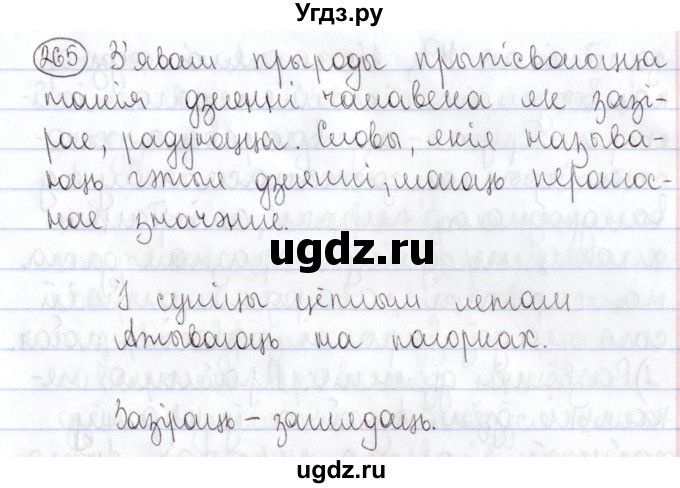 Угдз.ру
265 З'явам прыроды прыпісваюцца
такія дзеянні чалавека як зазі-
рае, радуюцца. Словы, якія называ-
юць гэтыя дзеянні, маюць перанос-
нае значэнне.
ugdz.ru
І суніцы цёплым летам
Ажываюць на пагорках.
Зазіраць – заглядаць.
ugdz.ru